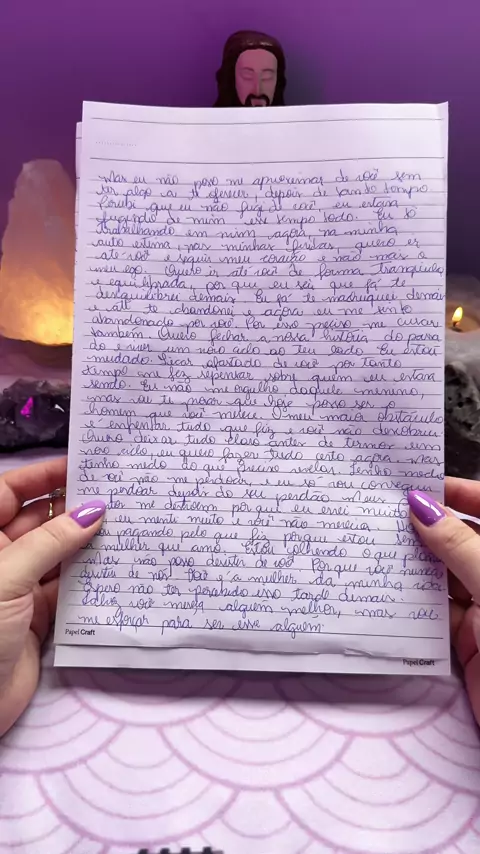 Mas eu não posso me aproximar de você sem
ter algo a te oferecer, depois de tanto tempo
percebi que eu não fugi de você, eu estava
fugindo de mim esse tempo todo. Eu to
trabalhando em mim, agora, na minha
auto estima, nas minhas feridas, quero ir
até você e seguir meu coração e não mais o
meu ego. Quero ir até você de forma tranquila
e equilibrada, por que eu sei que já te
desequilibrei demais. Eu já te madruguei demais
e até te abandonei e agora eu me sinto
abandonado por você. Por isso preciso me curar
também. Quero fechar a nossa história do passa
do e viver um novo ciclo ao teu lado. Eu estou
mudado. Ficar afastado de você por tanto
tempo me fez repensar sobre quem eu estava
sendo. Eu não me orgulho daquele menino,
mas vou te provar que hoje posso ser o
homem que você merece. O meu maior obstáculo
é enfrentar tudo que fiz e você não descobriu.
Quero deixar tudo claro antes de termos um
novo ciclo, eu quero fazer tudo certo agora. Mas
tenho medo do que preciso revelar. Tenho medo
de você não me perdoar, e eu só vou conseguir
me perdoar depois do seu perdão. Meus
me destroem por que eu errei muito
eu menti muito e você não merecia.
pagando pelo que fiz porque estou sem
a mulher que amo. Estou colhendo o que
Mas não posso desistir de você. Porque você nunca
desistiu de nós. Você é a mulher da minha vida.
Espero não ter percebido isso tarde demais.
você mereça alguém melhor, mas vou
me esforçar para ser esse alguém.
Papel Craft
Papel Craft